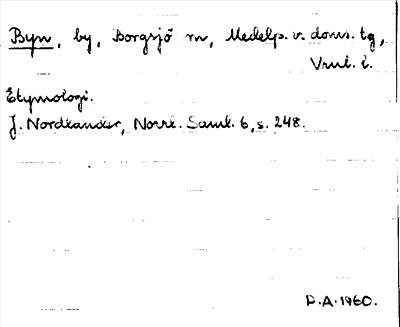 Byn, by, Borgsjö sn, Medelp. v. doms. tg,
Vnl. l.
Etymologi.
J. Nordlander, Norrl. Saml. 6, s. 248.
P.A. 1960.